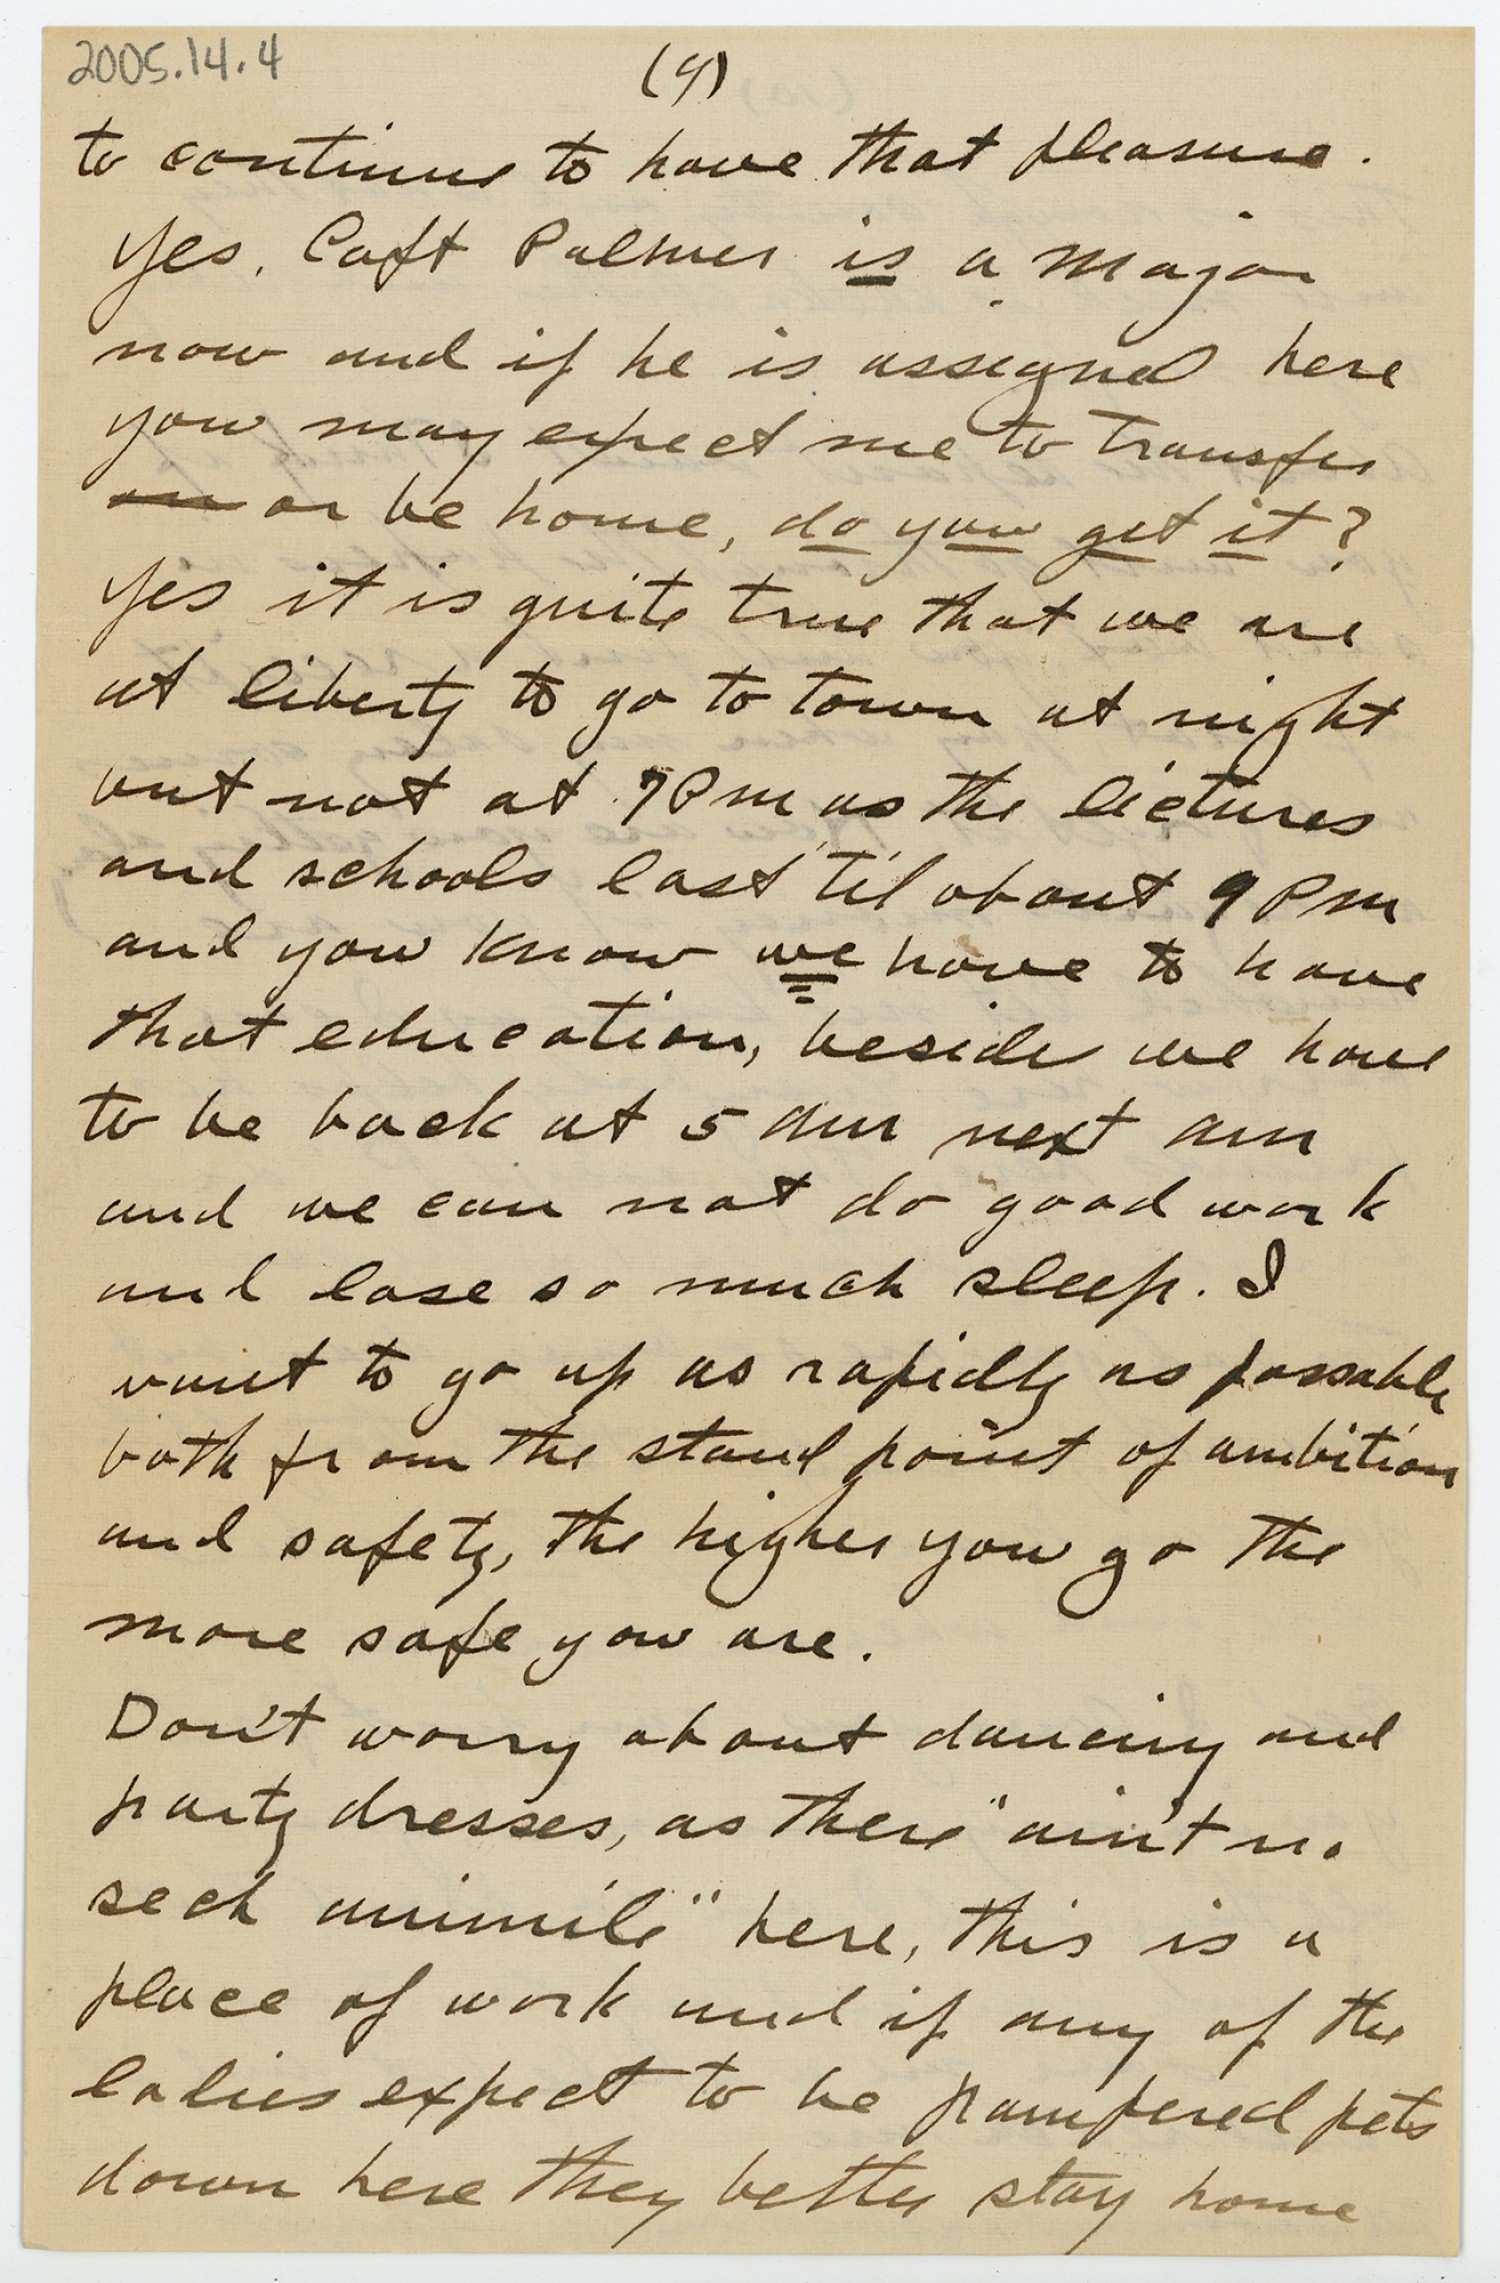 2005.14.4
(9)
to continue to have that pleasure.
Yes, Capt Palmer is a Major
now and if he is assigned here
you may expect me to transfer
on or be home, do you get it?
Yes it is quite true that we are
at liberty to go to town at night
but not at 7 Pm as the lectures
and schools last 'til about 9 Pm
and you know we have to have
that education, beside we have
to be back at 5 am next am
and we can not do good work
and lose so much sleep. I
want to go up as rapidly as possable
both from the stand point of ambition
and safety, the higher you go the
more safe you are.
Don't worry about dancing and
party dresses, as there "ain't no
sech animile" here, this is a
place of work and if any of the
ladies expect to be pampered pets
down here they better stay home